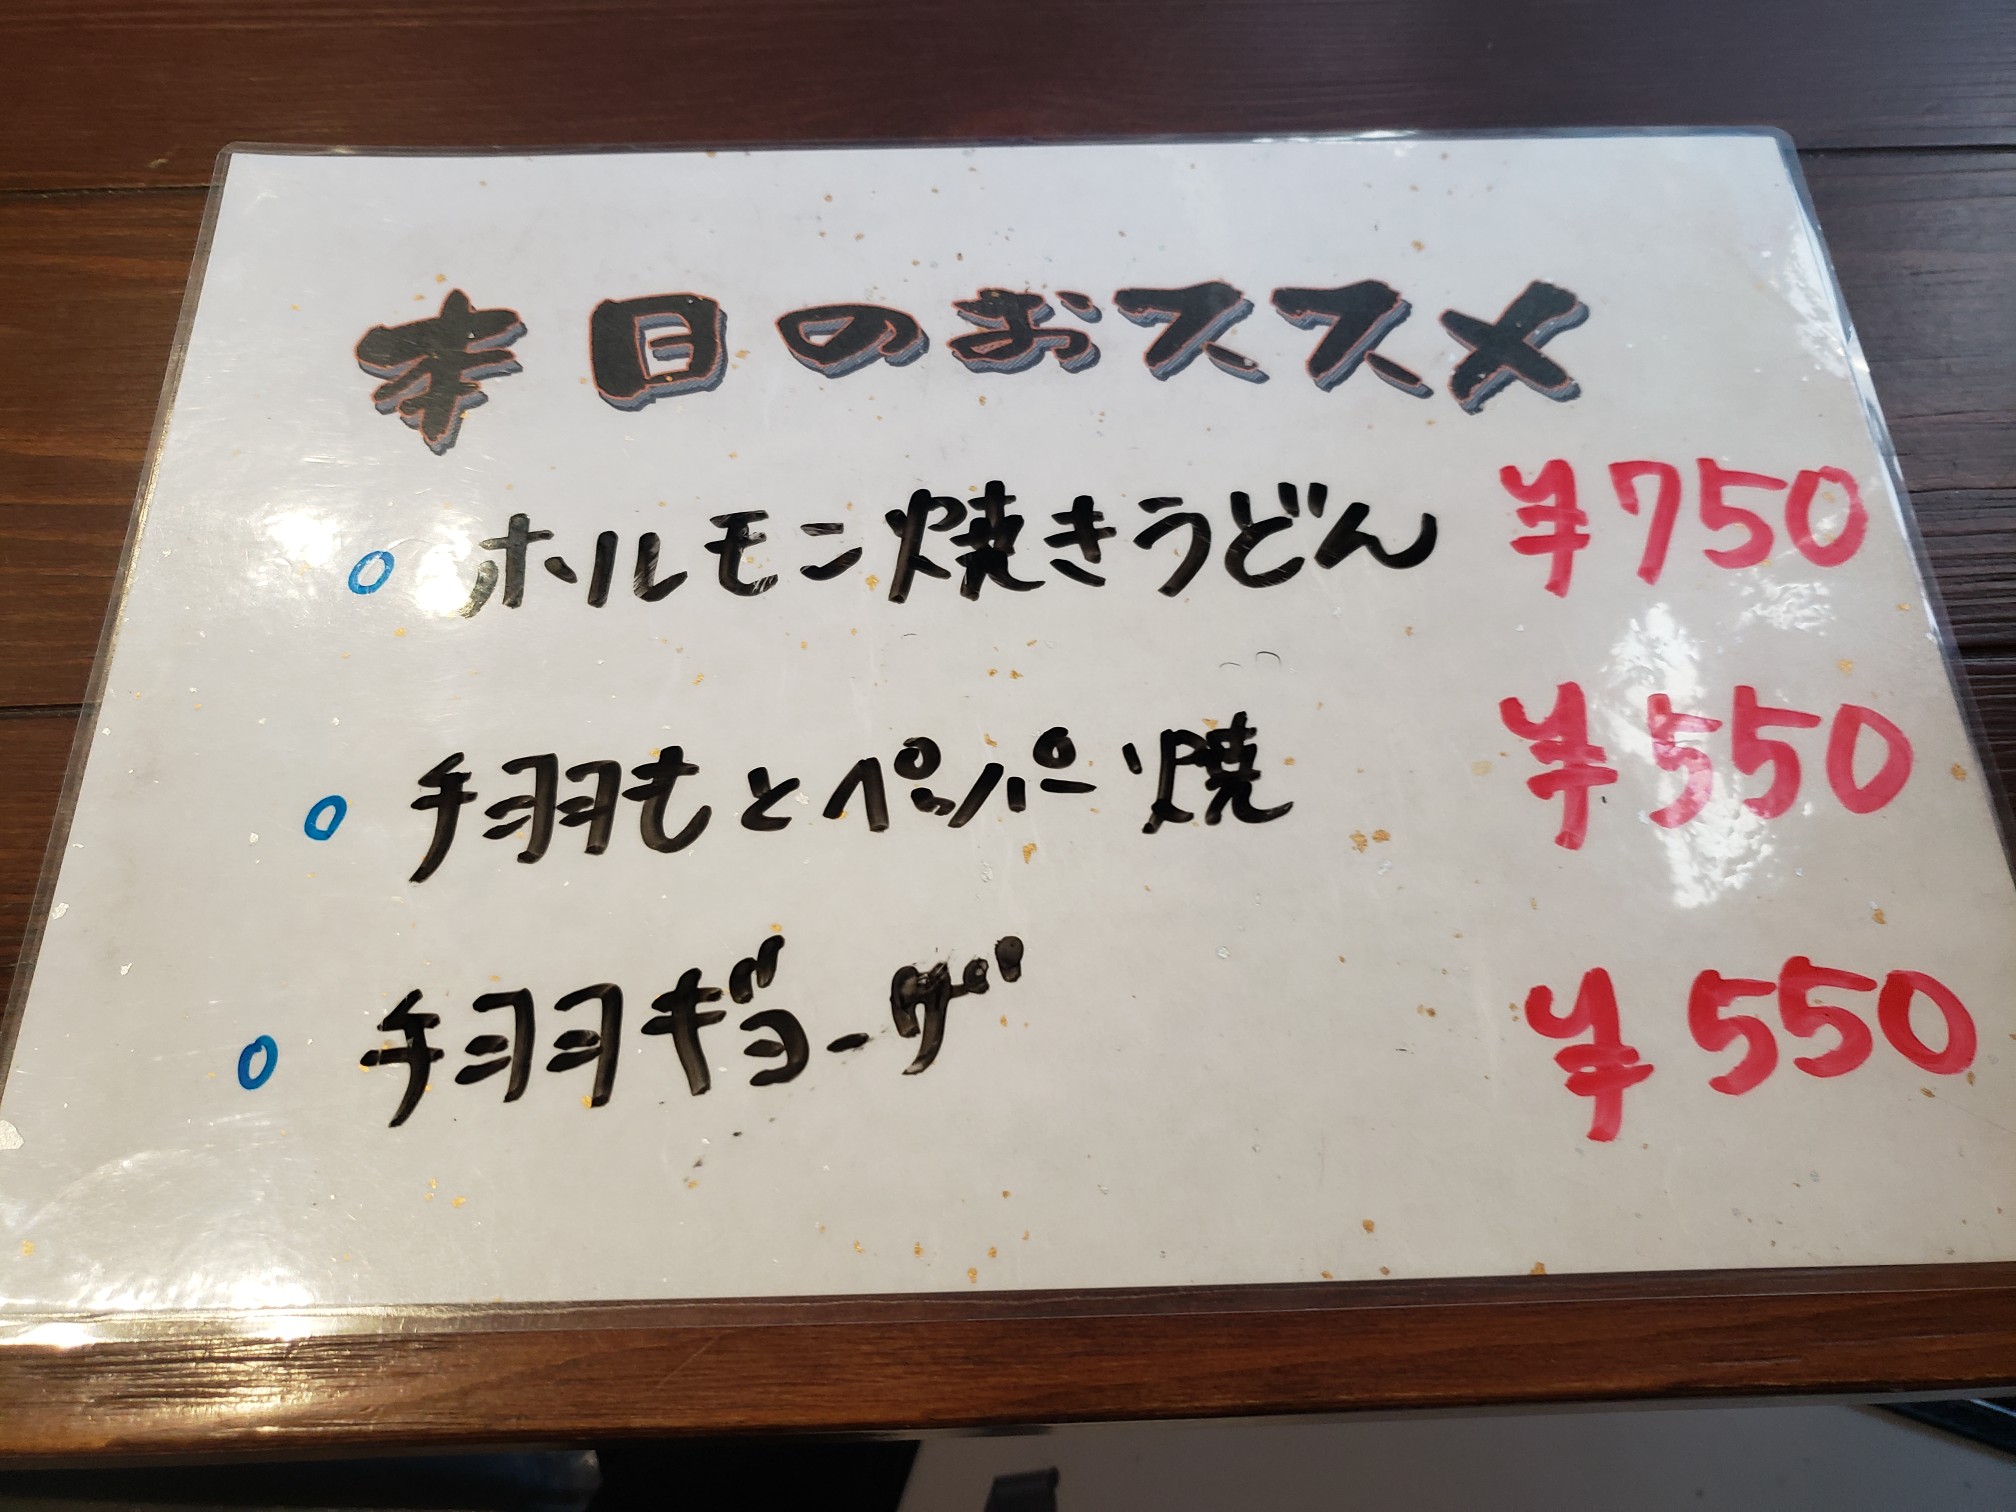 本日のおススメ
ホルモン焼きうどん ¥750
手羽もとペッパー焼 ¥550
手羽ギョーザ ¥550